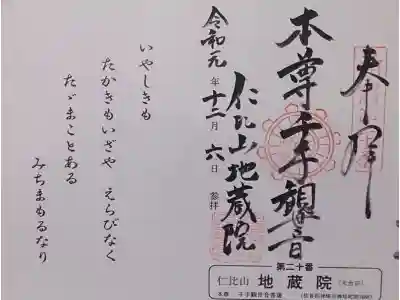 奉拝
本尊千手観音
仁比山地蔵院
令和元年十二月六日 参拝
第二十番
仁比山 地蔵院
本尊 千手観世音菩薩
いやしきも
たかきもいざや えらびなく
たゞまことある
みちまもるなり